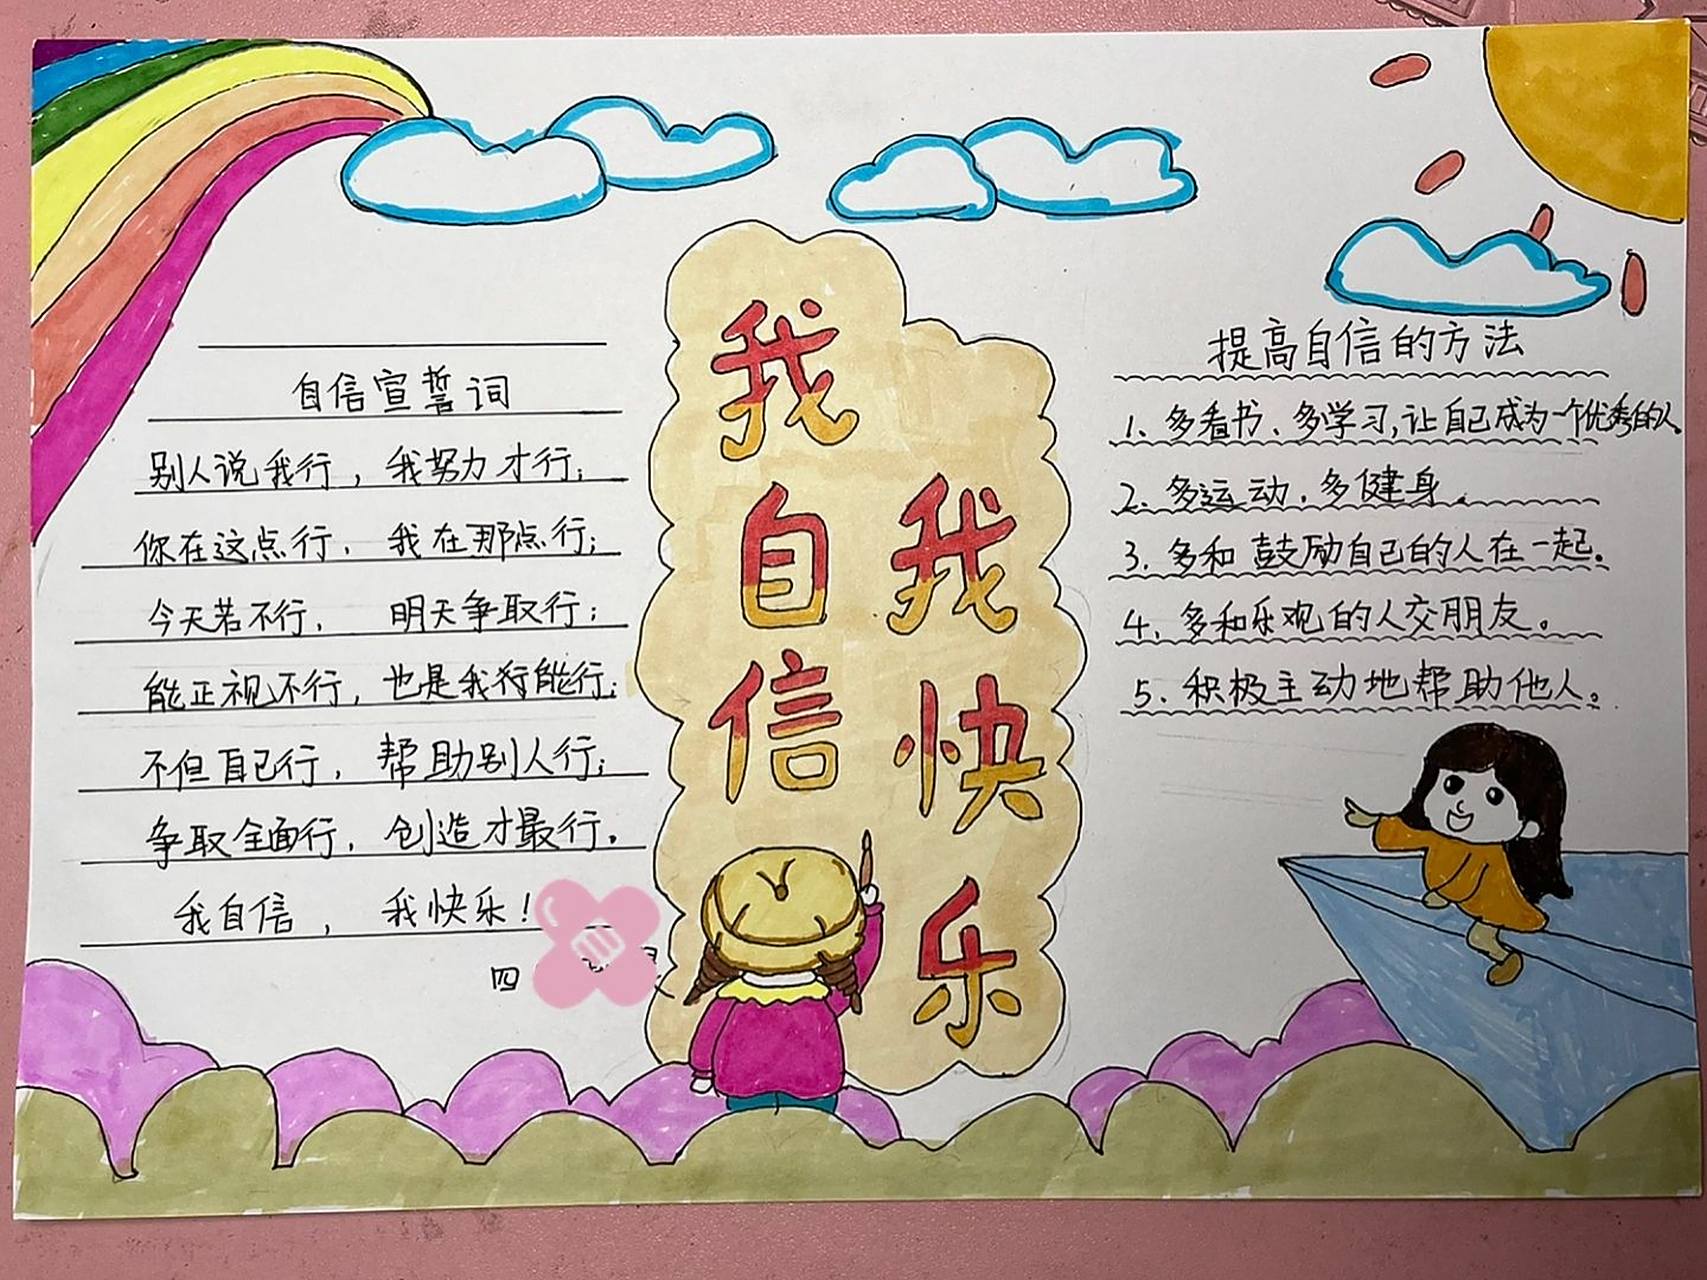 自信宣誓词
别人说我行，我努力才行；
你在这点行，我在那点行；
今天若不行，明天争取行；
能正视不行，也是我行能行；
不但自己行，帮助别人行；
争取全面行，创造才最行。
我自信，我快乐！
四
我自信
我快乐
提高自信的方法
1、多看书、多学习，让自己成为一个优秀的人。
2、多运动，多健身。
3、多和鼓励自己的人在一起。
4、多和乐观的人交朋友。
5、积极主动地帮助他人。